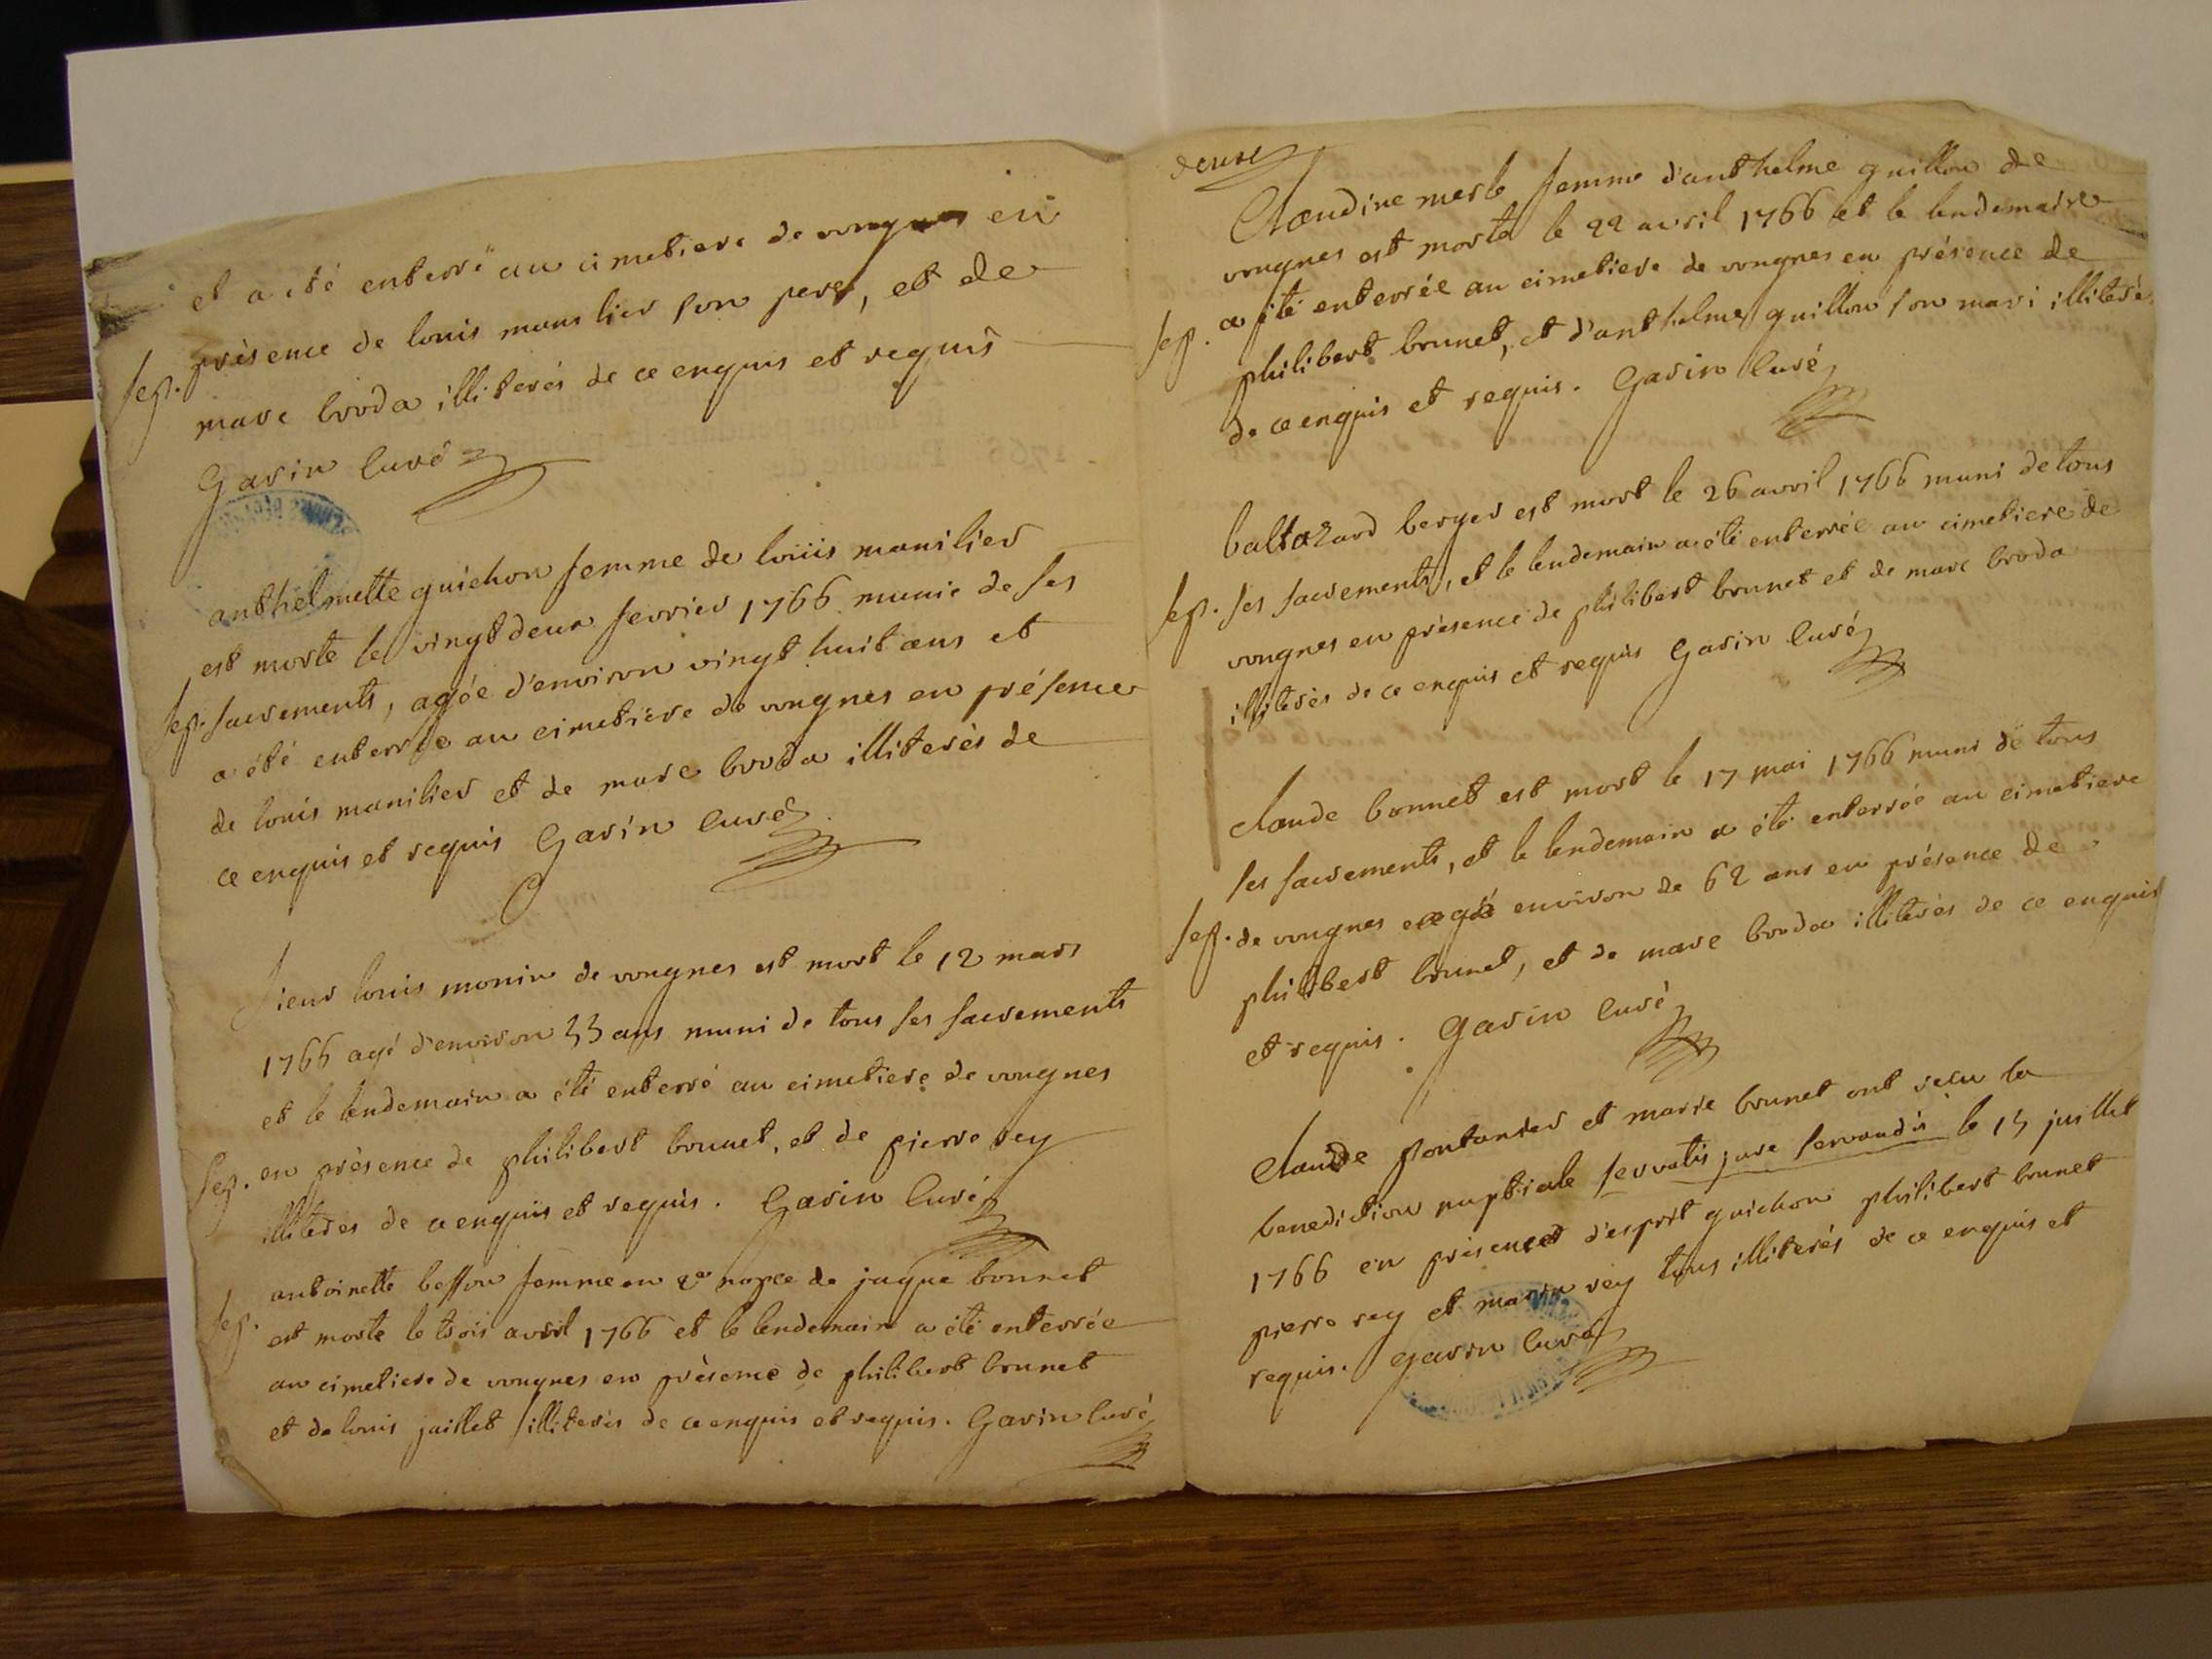 et a été enterré au cimetiere de vongnes en
présence de louis manilier son pere, et de
sep.
marc broda illiterés de ce enquis et requis
Garin Curé
anthelmette guichon femme de louis manilier
est morte le vingt deux fevrier 1766 munie de ses
sep. sacrements, agée d'environ vingt huit ans et
a été enterrée au cimetiere de vongnes en présence
de louis manilier et de marc broda illiterés de
ce enquis et requis Garin Curé
sieur louis monin de vongnes est mort le 12 mars
1766 agé d'environ 33 ans muni de tous ses sacrements
et le lendemain a été enterré au cimetiere de vongnes
sep. en présence de philibert brunet, et de pierre rey
illiterés de ce enquis et requis. Garin Curé
antoinette besson femme en 2e nopce de jaque bonnet
sep.
est morte le trois avril 1766 et le lendemain a été enterrée
au cimetiere de vongnes en présence de philibert brunet
et de louis juillet illiterés de ce enquis et requis. Garin Curé
deux
Claudine merle femme d'anthelme guillon de
vongnes est morte le 22 avril 1766 et le lendemain
sep. a été enterrée au cimetiere de vongnes en présence de
philibert brunet, et d'anthelme guillon son mari illiterés
de ce enquis et requis. Garin Curé
baltazard berger est mort le 26 avril 1766 muni de tous
sep. ses sacrements, et le lendemain a été enterrée au cimetiere de
vongnes en présence de philibert brunet et de marc broda
illiterés de ce enquis et requis Garin Curé
Claude bonnet est mort le 17 mai 1766 muni de tous
ses sacrements, et le lendemain a été enterrée au cimetiere
sep. de vongnes agé environ de 62 ans en présence de
philibert brunet, et de marc broda illiterés de ce enquis
et requis. Garin Curé
Claude pontanier et marie brunet ont recu la
benediction nuptiale servatis jure servandis le 15 juillet
1766 en présence d'esprit guichon philibert brunet
pierre rey et marin rey tous illiterés de ce enquis et
requis. Garin Curé